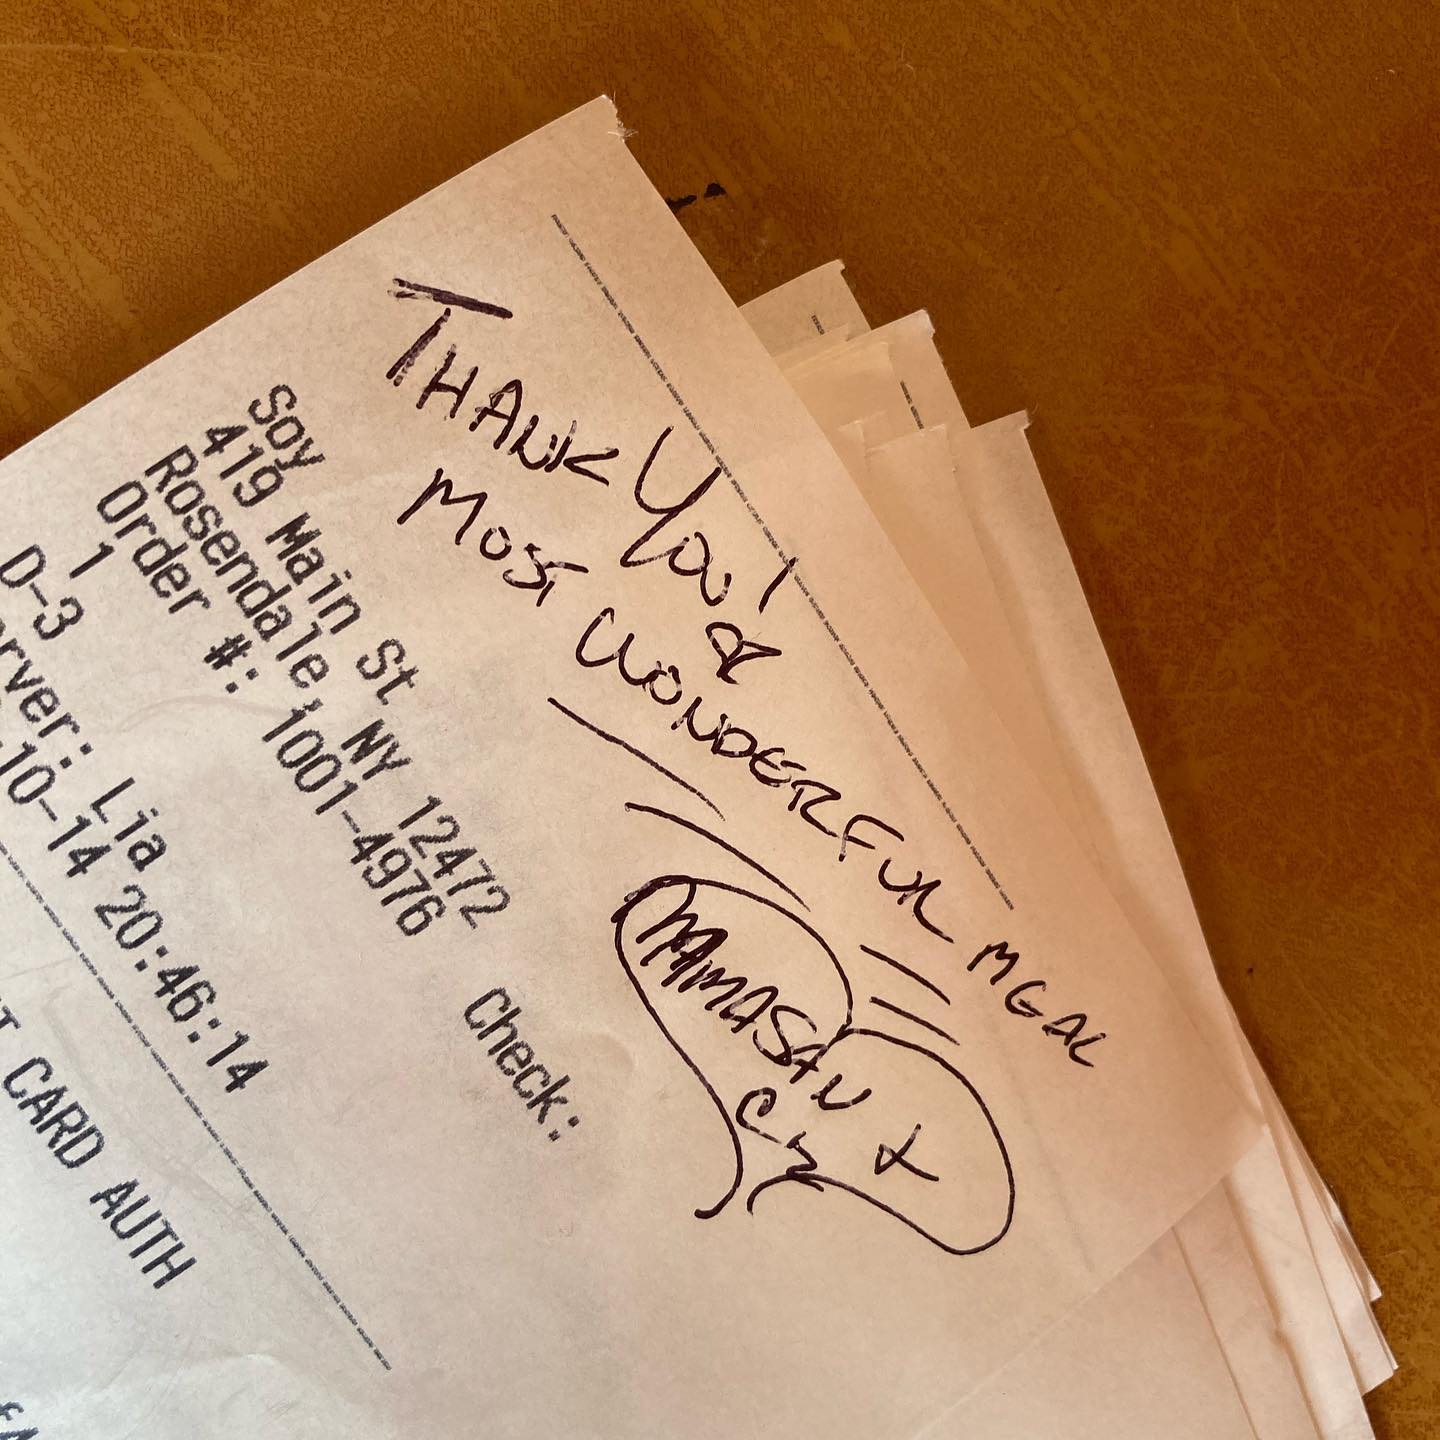 THANK YOU! a
MOST WONDERFUL MEAL
Soy
419 Main St
Rosendale, NY 12472
Order #: 1001-4976
1 Check:
D-3
erver: Lia
10-14 20:46:14
T CARD AUTH